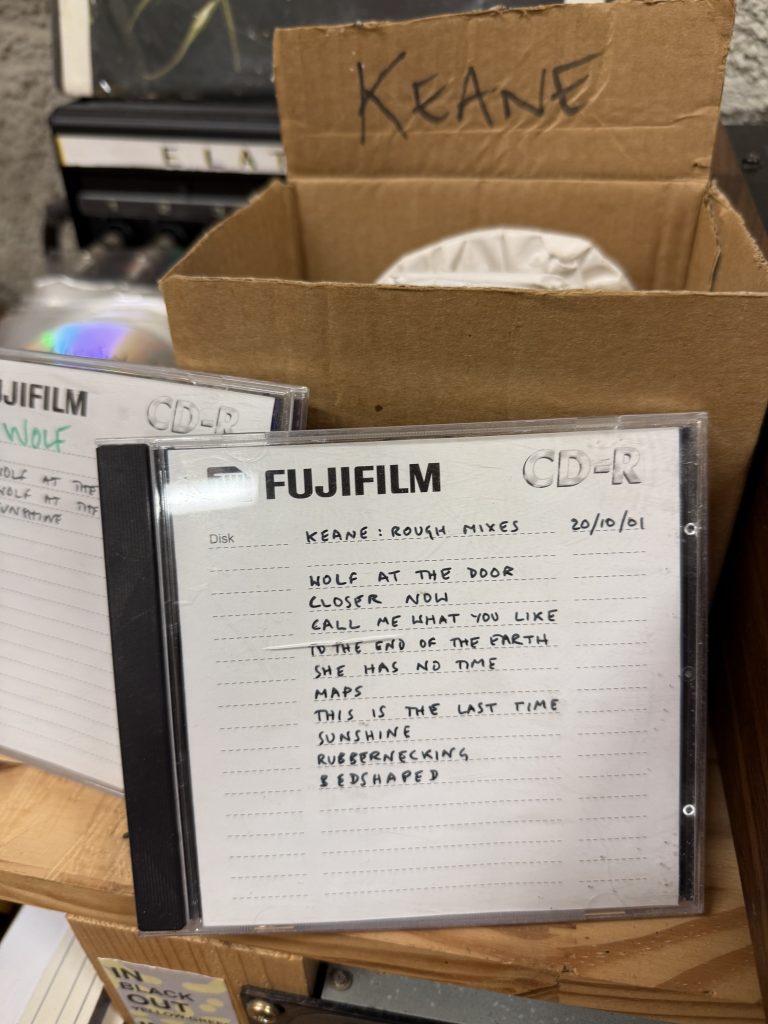 KEANE
ELAT
UJIFILM
CD-R
WOLF
WOLF AT THE
WOLF AT THE
SUNSHINE
FUJIFILM
CD-R
Disk
KEANE : ROUGH MIXES 20/10/01
WOLF AT THE DOOR
CLOSER NOW
CALL ME WHAT YOU LIKE
TO THE END OF THE EARTH
SHE HAS NO TIME
MAPS
THIS IS THE LAST TIME
SUNSHINE
RUBBERNECKING
BEDSHAPED
IN
BLACK
OUT
YELLOW-GREEN